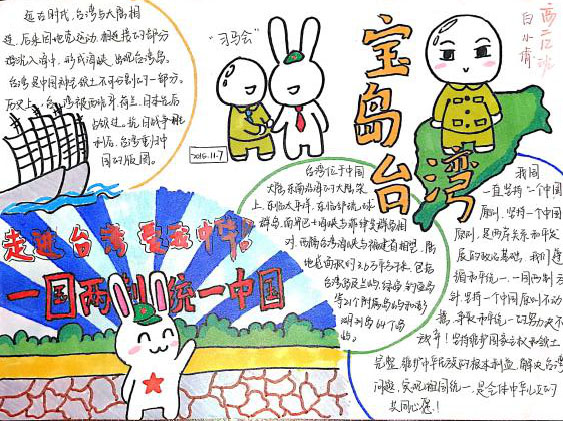 远古时代,台湾与大陆相
连,后来因地壳运动,相连接的部分
沉入海中,形成海峡,出现台湾岛。
台湾是中国神圣领土不可分割的一部分。
历史上,台湾被西班牙、荷兰、日本先后
占领过。抗日战争胜
利后,台湾重归中
国的版图。
“习马会”
2015.11.7
宝岛台湾
高二12班
白小倩
走进台湾 爱我中华!!
一国两制 统一中国
台湾位于中国
大陆东南沿海的大陆架
上,东临太平洋,东临琉球
群岛,南界巴士海峡与菲律宾群岛相
对,西隔台湾海峡与福建省相望,陆
地总面积约3.6万平方千米,包括
台湾岛及兰屿、绿岛、钓鱼岛
等21个附属岛屿和澎
湖列岛64个岛
屿。
我国
一直坚持“一个中国”
原则,坚持一个中国
原则,是两岸关系和平发
展的政治基础,我们遵
循和平统一、一国两制方
针,坚持一个中国原则不动
摇,争取和平统一的努力决不
放弃!坚持维护国家主权和领土
完整,维护中华民族的根本利益,解决台湾
问题,实现祖国统一,是全体中华儿女的
共同心愿!